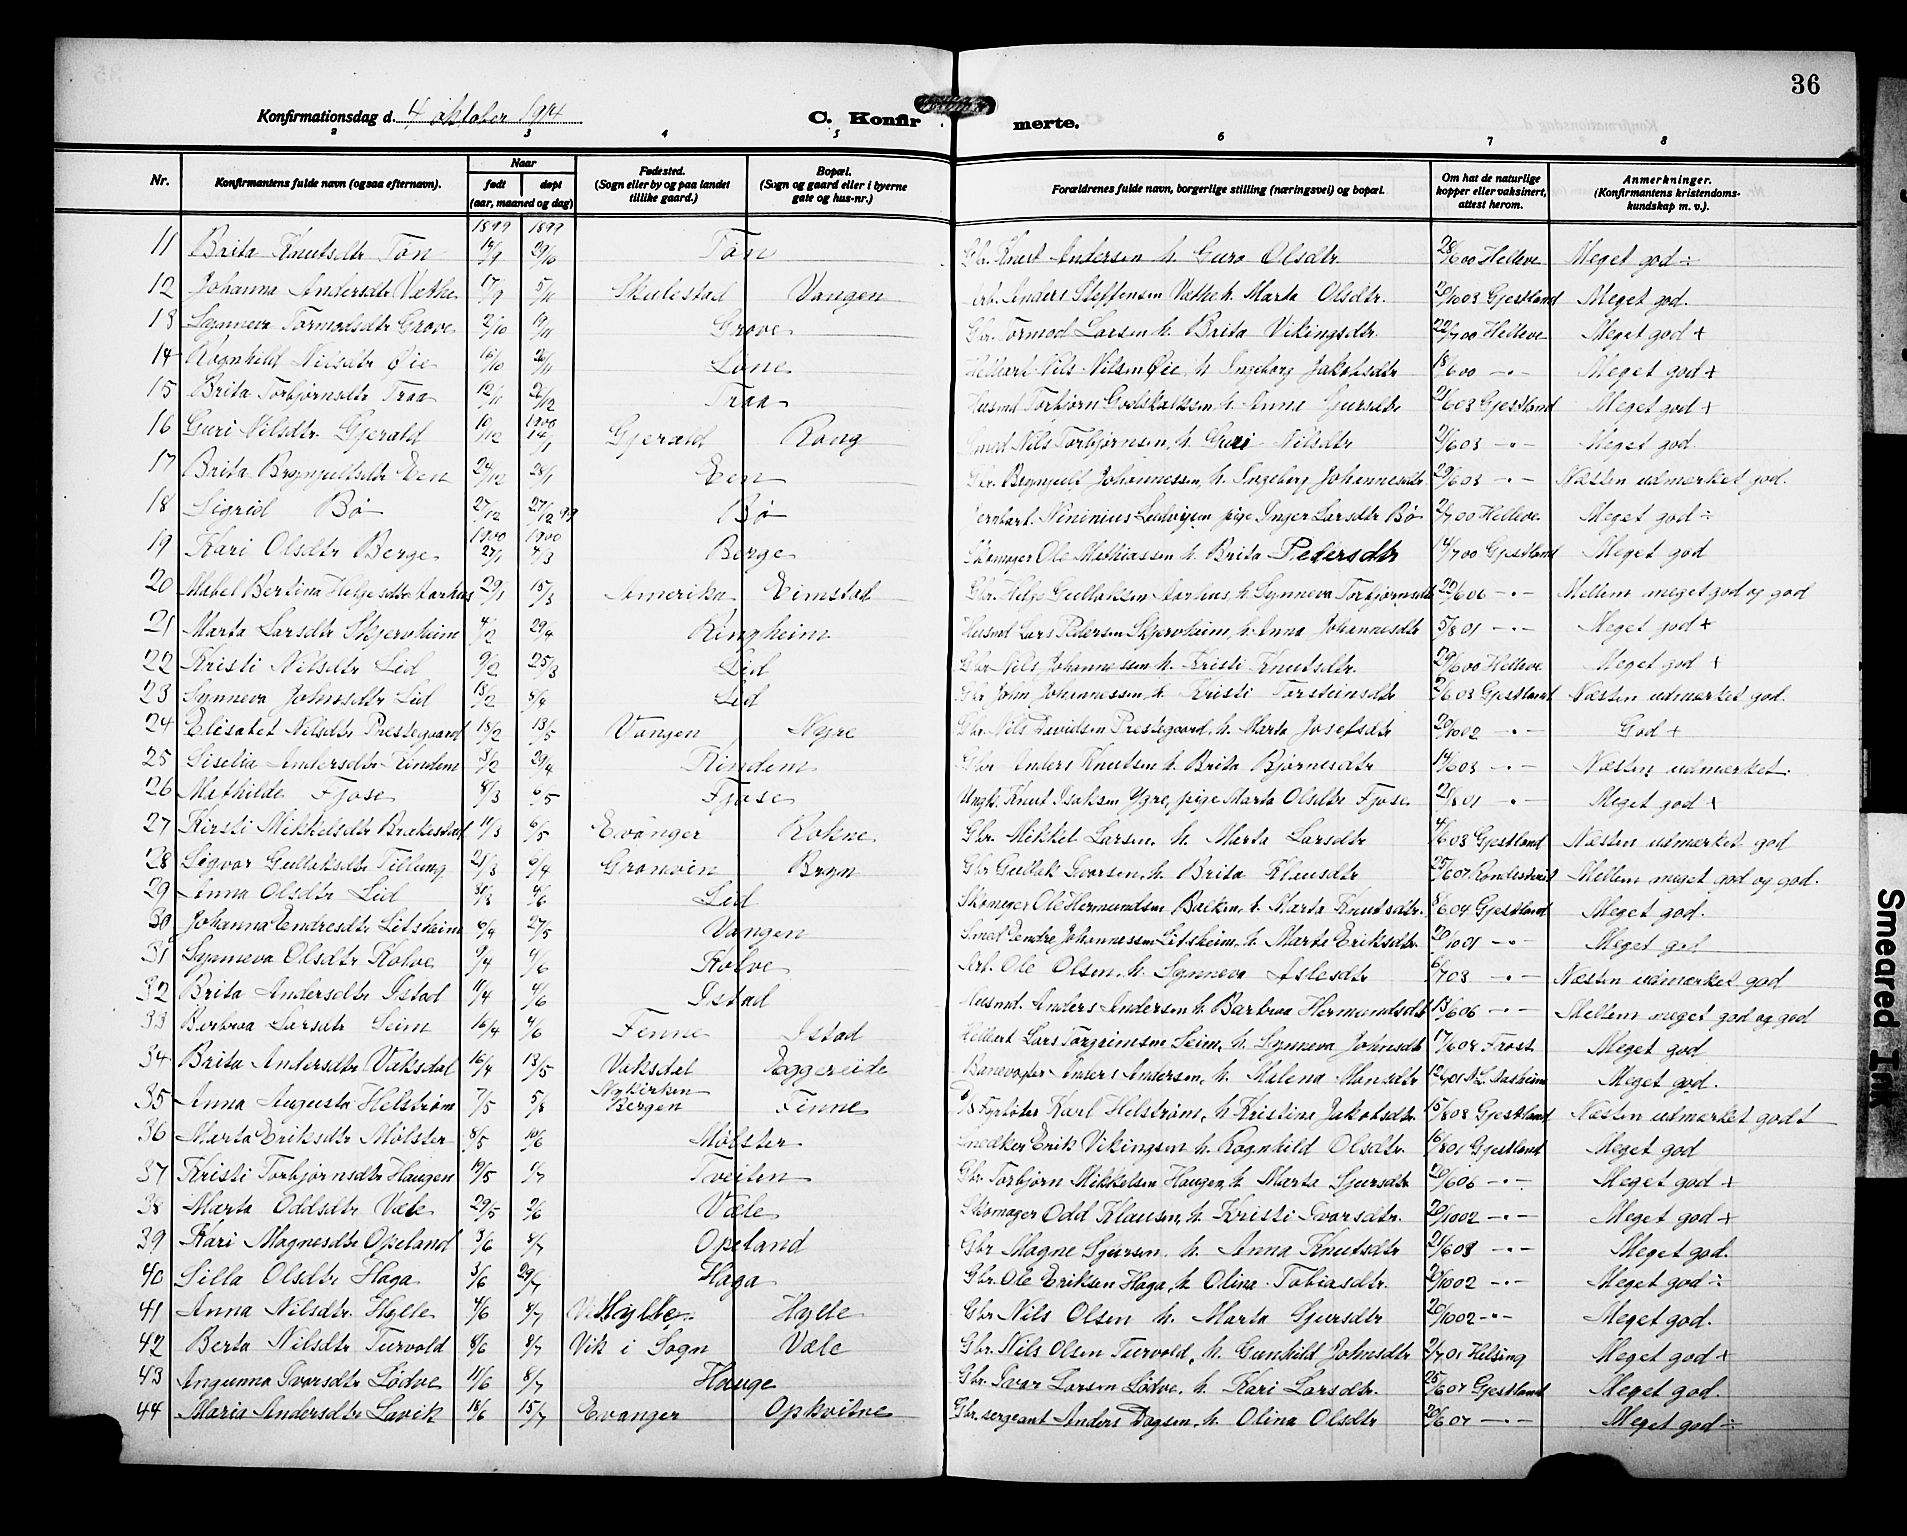 36
Konfirmationsdag d. 4 oktober 1914
C. Konfirmerte.
2 3 4 5 6 7 8
Nr. Konfirmantens fulde navn (ogsaa efternavn). Naar født døpt (aar, maaned og dag) Fødested. (Sogn eller by og paa landet tillike gaard.) Bopæl. (Sogn og gaard eller i byerne gate og hus-nr.) Forældrenes fulde navn, borgerlige stilling (næringsvei) og bopæl. Om hat de naturlige kopper eller vaksinert, attest herom. Anmerkninger. (Konfirmantens kristendoms-kundskap m. v.).
1899 1899
11 Brita Knutsdtr Tøn Tøn Gbr. Knut Andersen h. Guro Olsdtr 28/6 00 Helleve Meget god ÷
12 Johanna Andersdtr Væthe 17/9 5/11 Skulestad Vangen Anders Steffensen Væthe h. Marta Olsdtr. Gjestland Meget god.
13 Synneva Tormodsdtr Grove 2/10 19/11 Grove Gbr. Tormod Larsen h. Brita Vikingsdtr. 22/7 00 Helleve Meget god +
14 Ragnhild Nilsdtr Øie 16/10 26/11 Lone Nils Nilsen Øie, h. Ingeborg Jakobsdtr 18/6 00 -"- Meget god +
15 Brita Torbjørnsdtr Traa 12/11 26/12 Traa Husmd Torbjørn Godskalksen h. Anna Sjursdtr Gjestland Meget god +
1900
16 Guri Nilsdtr. Gjerald 10/12 14/1 Gjerald Rong Smed Nils Torbjørnsen, h. Guri Nilsdtr -"- Meget god.
17 Brita Brynjulfsdtr Een 24/12 28/1 Een Gbr. Brynjulf Johannessen, h. Ingeborg Johannesdtr 29/6 03 -"- Næsten udmerket god.
18 Sigrid Bø 27/12 27/12 99 Bø Nininius Ludvigsen pige Inger Larsdtr Bø Helleve Meget god ÷
1900 1900
19 Kari Olsdtr Berge 27/1 Berge Skomager Ole Mathiassen h. Brita Pedersdtr 14/7 00 Gjestland Meget god
20 Mabel Bertina Helgesdtr Aarhus 29/1 15/3 Amerika Eimstad Gbr. Helge Gullaksen Aarhus, h. Synneva Torbjørnsdtr -"- Mellem meget god og god
21 Marta Larsdtr Skjervheim 4/2 29/4 Ringheim Husmd Lars Pedersen Skjervheim, h. Anna Johannesdtr 5/8 01 -"- Meget god +
22 Kristi Nilsdtr Lid 9/2 25/3 Lid Gbr Nils Johannessen h. Kristi Knutsdtr. Helleve Meget god +
23 Synneva Johnsdtr Lid 13/2 8/4 Lid Gbr John Johannessen, h. Kristi Torsteinsdtr Gjestland Næsten udmerket god.
24 Elisabet Nilsdtr Prestegaard 18/2 13/5 Vangen Nyre Gbr. Nils Davidsen Prestegaard, h. Marta Josefsdtr 20/10 02 -"- God +
25 Liselia Andersdtr Rindem 29/4 Rindem Gbr Anders Knutsen h. Brita Bjørnesdtr 14/6 03 -"- Næsten udmerket.
26 Mathilde Fjose 8/3 6/5 Fjose Ungk. Knut Isaksen Ygre, pige Marta Olsdtr Fjose -"- Meget god +
27 Kirsti Mikkelsdtr Brækestad 11/3 6/5 Evanger Rokne Gbr. Mikkel Larsen, h. Marta Larsdtr Gjestland Næsten udmerket god
28 Sigvor Gullaksdtr Tillung 21/3 Granvin Bryn Gbr Gullak Ivarsen, h. Brita Klausdtr Mellem meget god og god.
29 Anna Olsdtr Lid Lid Skomager Ole Hermundsen Balken, h. Marta Knutsdtr. Gjestland Meget god.
30 Johanna Endresdtr Litsheim 27/5 Vangen Smed Endre Johannessen Litsheim, h. Marta Eriksdtr. 20/10 01 -"- Meget god
31 Synneva Olsdtr Kolve 9/4 4/6 Kolve Arb. Ole Olsen, h. Synneva Aslesdtr -"- Næsten udmerket god
32 Brita Andersdtr Istad 11/4 4/6 Istad Husmd. Anders Andersen h. Barbroa Hermundsdtr -"- Mellem meget god og god
33 Berbroa Larsdtr Seim 16/4 4/6 Fenne Istad Lars Torgrimsen Seim, h. Synneva Johnsdtr Frost Meget god
34 Brita Andersdtr Vaksdal 16/4 13/5 Vaksdal Æggereide Banevogter Anders Andersen, h. Malena Monsdtr Meget god.
35 Anna Augusta Helstrøm 7/5 5/8 Nykirken Bergen Finne Fyrbøter Karl Helstrøm, h. Kristine Jakobsdtr 15/8 08 Gjestland Næsten udmerket godt
36 Marta Eriksdtr Mølster 8/5 10/6 Mølster Snedker Erik Vikingsen h. Ragnhild Olsdtr. 16/8 01 Gjestland Meget god
37 Kristi Torbjørnsdtr Haugen 19/5 Tveiten Gbr. Torbjørn Mikkelsen Haugen, h. Marta Sjursdtr -"- Meget god +
38 Marta Oddsdtr Væle 29/5 Væle Skomager Odd Klausen, h. Kristi Ivarsdtr. 20/10 02 -"- Meget god +
39 Kari Magnesdtr Opeland 3/6 8/7 Opeland Gbr Magne Sjursen, h. Anna Knutsdtr 21/6 03 -"- Meget god.
40 Silla Olsdtr Haga 3/6 29/7 Haga Gbr. Ole Eriksen Haga, h. Olina Tobiasdtr. 20/10 02 -"- Meget god ÷
41 Anna Nilsdtr. Hylle 4/6 8/7 Hylle Hylle Gbr Nils Olsen h. Marta Sjursdtr 20/10 02 -"- Meget god.
42 Berta Nilsdtr Turvold 8/6 8/7 Vik i Sogn Væle Gbr. Nils Olsen Turvold, h. Gunhild Johnsdtr 2/7 01 Helsing Meget god +
43 Angunna Ivarsdtr Lødve 11/6 8/7 Hauge Gbr. Ivar Larsen Lødve, h. Kari Larsdtr. Gjestland Meget god.
44 Maria Andersdtr Lavik 18/6 15/7 Evanger Opkvitne Gbr. sergeant Anders Dagsen, h. Olina Olsdtr -"- Meget god ÷
Smeared Ink